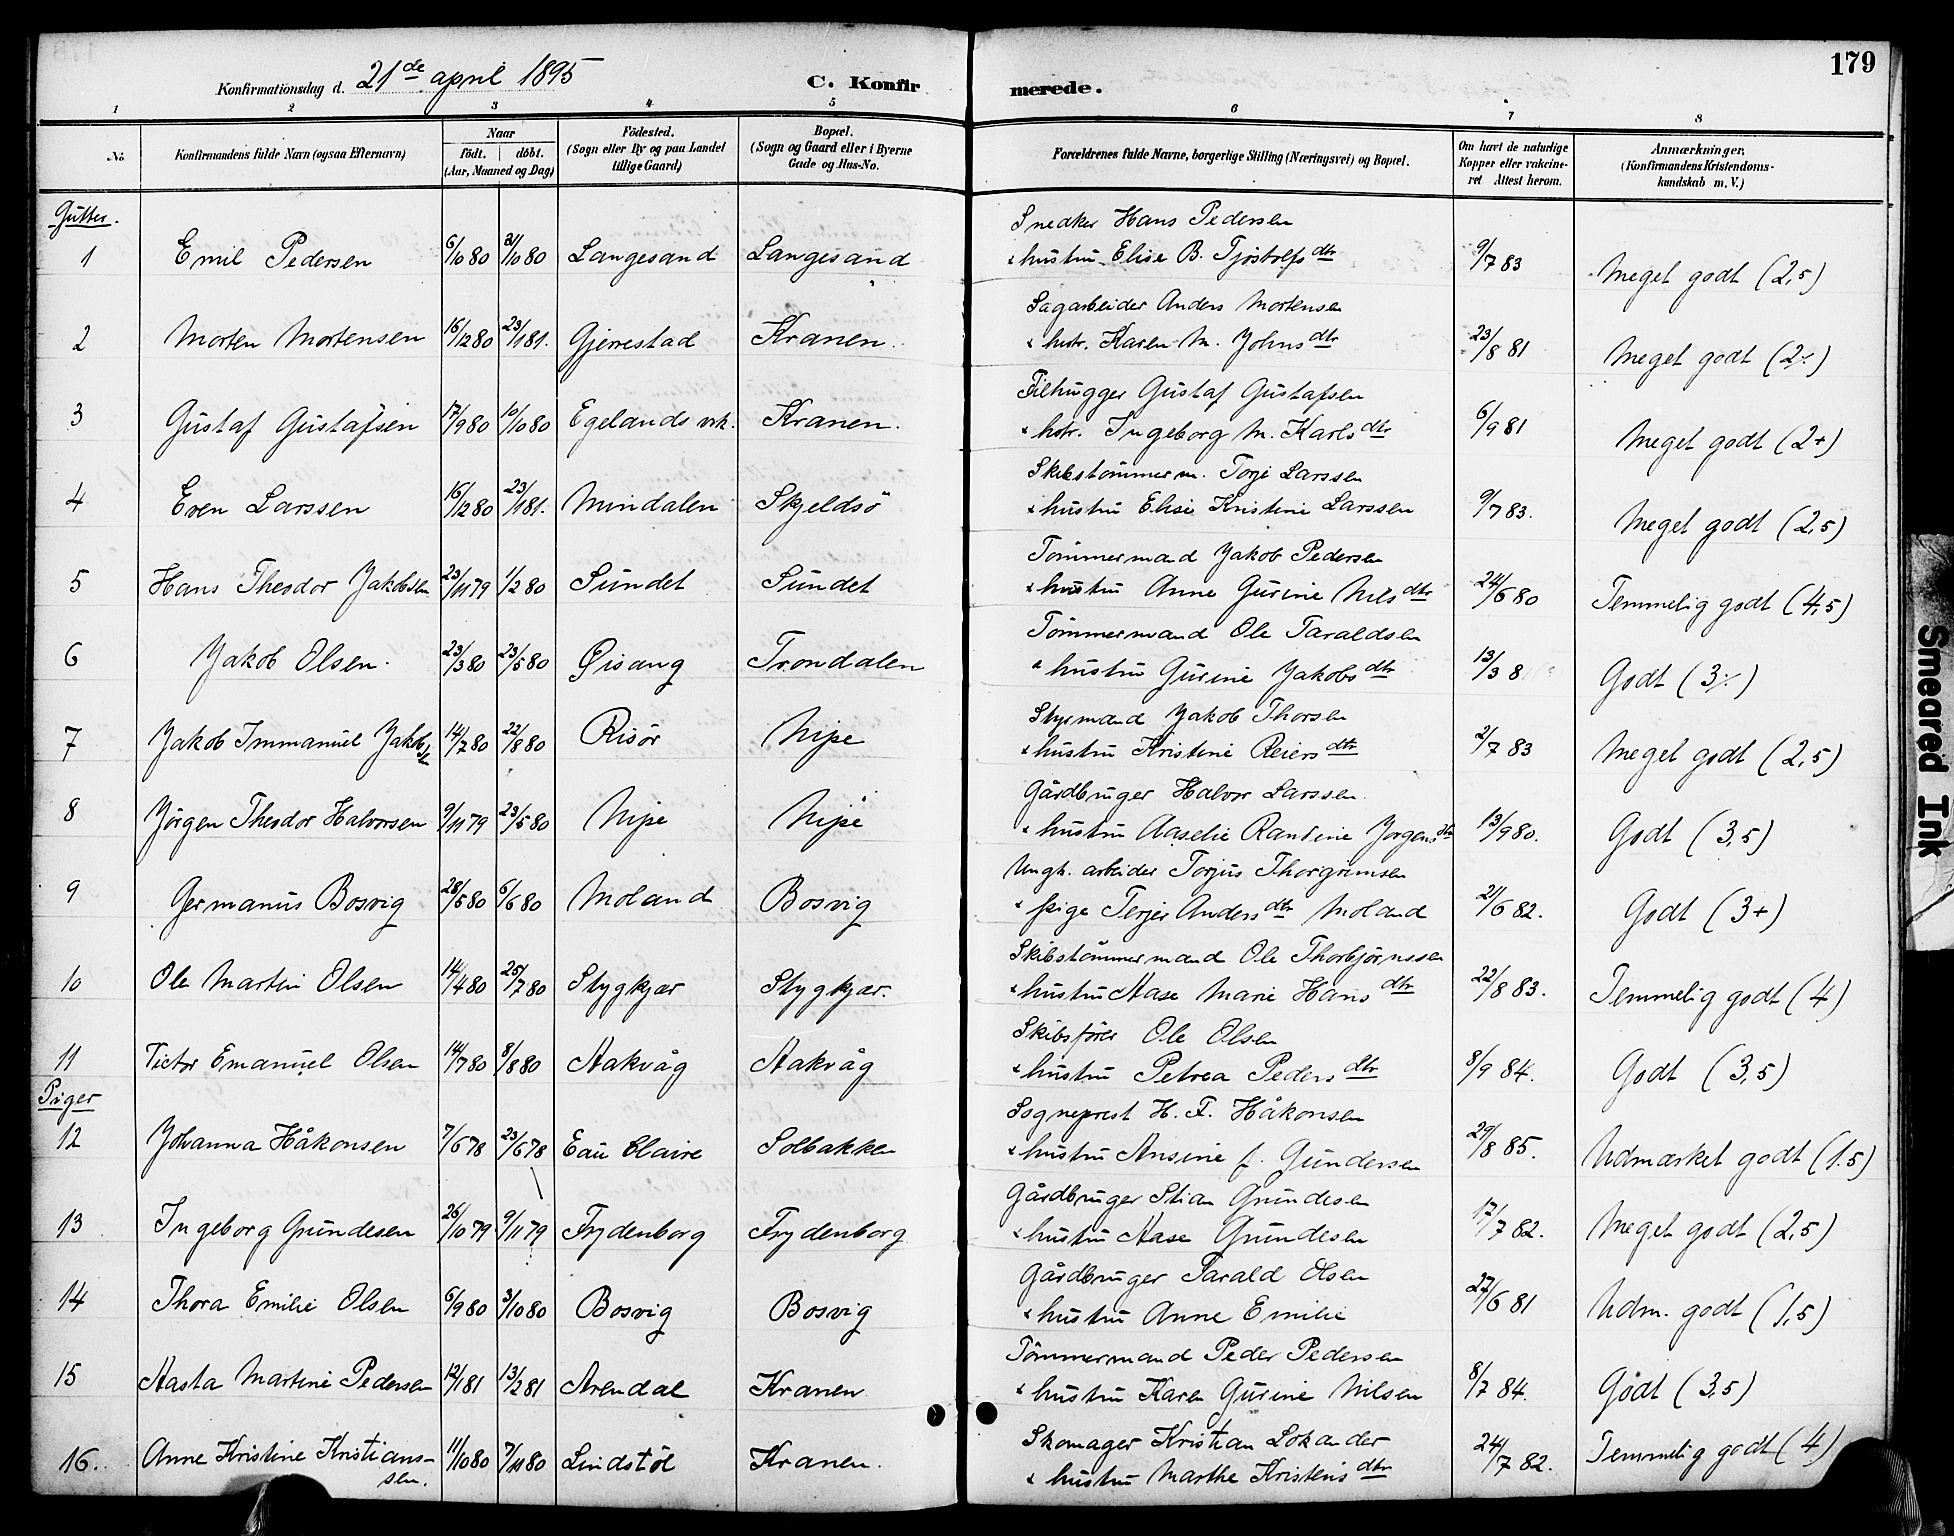 179
Konfirmationsdag d. 21de april 1895
C. Konfirmerede.
1 2 3 4 5 6 7 8
No. | Konfirmandens fulde Navn (ogsaa Efternavn) | Naar født. døbt. (Aar, Maaned og Dag) | Fødested. (Sogn eller By og paa Landet tillige Gaard) | Bopæl. (Sogn og Gaard eller i Byerne Gade og Hus-No. | Forældrenes fulde Navne, borgerlige Stilling (Næringsvei) og Bopæl. | Om havt de naturlige Kopper eller vakcineret Attest herom. | Anmærkninger, (Konfirmandens Kristendomskundskab m. V.)
Gutter.
Snedker Hans Pedersen
1 Emil Pedersen 6/10 80 31/10 80 Langesand Langesand & hustru Elise B. Tjøstolfsdtr 9/7 83 Meget godt (2,5)
Sagarbeider Anders Mortensen
2 Morten Mortensen 16/12 80 23/1 81. Gjerrestad Kranen. & hstr. Karen M. Johnsdtr 23/8 81 Meget godt (2
Filhugger Gustaf Gustafsen
3 Gustaf Gustafsen 17/9 80 10/10 80 Egelands vrk. Kranen. & hstr. Ingeborg M. Karlsdtr 6/9 81 Meget godt (2+)
Skibstømmerm. Torje Larssen
4 Even Larssen 16/12 80 23/1 81. Mindalen Skjeldsø & hustru Elise Kristine Larssen 9/7 83. Meget godt (2,5)
Tømmermand Jakob Pedersen
5 Hans Theodor Jakobsen 23/11 79 1/2 80 Sundet Sundet & hustru Anne Gurine Nilsdtr 24/6 80 Temmelig godt (4,5)
Tømmermand Ole Taraldsen
6 Jakob Olsen. 23/3 80 23/5 80 Gisang Trondalen & hustru Gurine Jakobsdtr 13/3 8 Godt (3
Styrmand Jakob Thorsen
7 Jakob Immanuel Jakobsen 14/7 80 22/8 80 Risør Nipe & hustru Kristine Reiersdtr 2/7 83 Meget godt (2,5)
Gårdbruger Halvor Larssen
8 Jørgen Theodor Halvorsen 9/11 79 23/5 80 Nipe Nipe & hustru Aaselie Rantine Jørgensdtr 13/9 80. Godt (3,5)
Ungk. arbeider Torjus Thorgrimsen
9 Germanus Bosvig 28/5 80 6/6 80 Moland Bosvig & pige Terjer Andersdtr Moland 21/6 82. Godt (3+)
Skibstømmermand Ole Thorbjørnssen
10 Ole Martin Olsen 14/4 80 25/7 80 Stygkjær Stygkjær. & hustru Aase Marie Hansdtr 22/8 83. Temmelig godt (4)
Skibsfører Ole Olsen
11 Victor Emanuel Olsen 14/7 80 8/8 80 Aakvåg Aakvåg & hustru Petrea Pedersdtr 8/9 84. Godt (3,5)
Piger
Sogneprest H. F. Håkonsen
12 Johanna Håkonsen 7/6 78 23/6 78 Eau Claire Solbakken & hustru Ansine f. Gundersen 29/8 85. Udmærket godt (1.5)
Gårdbruger Stian Grundesen
13 Ingeborg Grundesen 26/10 79 9/11 79 Frydenborg Frydenborg & hustru Aase Grundesen 17/7 82. Meget godt (2,5)
Gårdbruger Tarald Olsen
14 Thora Emilie Olsen 6/9 80 3/10 80 Bosvig Bosvig & hustru Anne Emilie 27/6 81 Udm. godt (1,5)
Tømmermand Peder Pedersen
15 Aasta Martine Pedersen 12/1 81 13/2 81 Arendal Kranen & hustru Karen Gurine Nilsen 8/7 84. Godt (3,5)
Skomager Kristian Lokander
16. Anne Kristine Kristianssen. 11/10 80 7/11 80 Lindstøl Kranen. & hustru Marthe Kristensdtr 24/7 82. Temmelig godt (4)
Smeared Ink